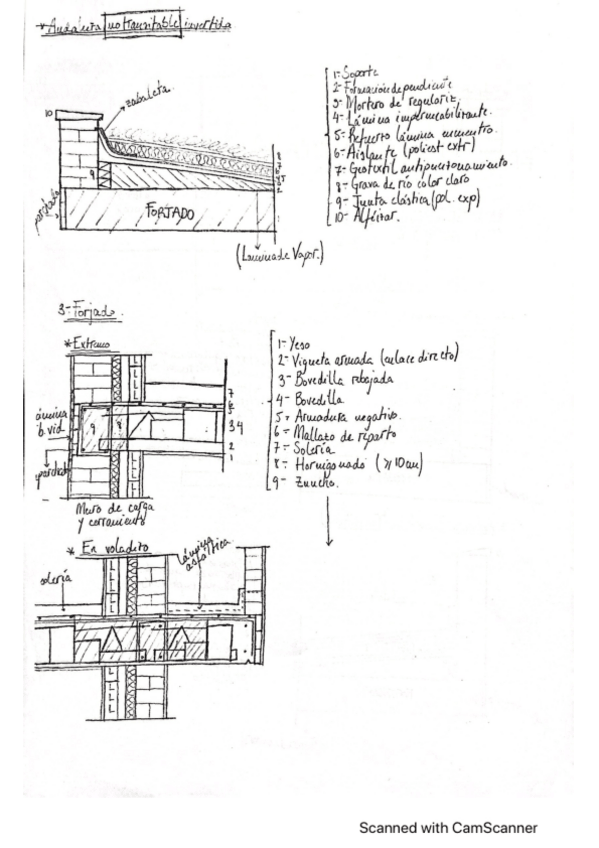 * Azotea no transitable invertida
zabaleta.
10
9
8
7
6
5
2
FORJADO
(Lámina de Vapor.)
1- Soporte
2- Formación de pendiente
3- Mortero de regulariz.
4- Lámina impermeabilizante.
5- Refuerzo lámina encuentro.
6- Aislante (poliest extr)
7- Geotextil antipunzonamiento.
8- Grava de río color claro
9- Junta elástica (pol. exp)
10- Alféizar.
3- Forjado.
* Extremo
9
8
7
6
5
3 4
2
1
Muro de carga
y cerramiento
1- Yeso
2- Vigueta armada (enlace directo)
3- Bovedilla rebajada
4- Bovedilla
5- Armadura negativo.
6- Mallazo de reparto
7- Solería
8- Hormigonado (≥10cm)
9- Zuncho.
* En voladizo
solería
lámina
asfáltica
Scanned with CamScanner